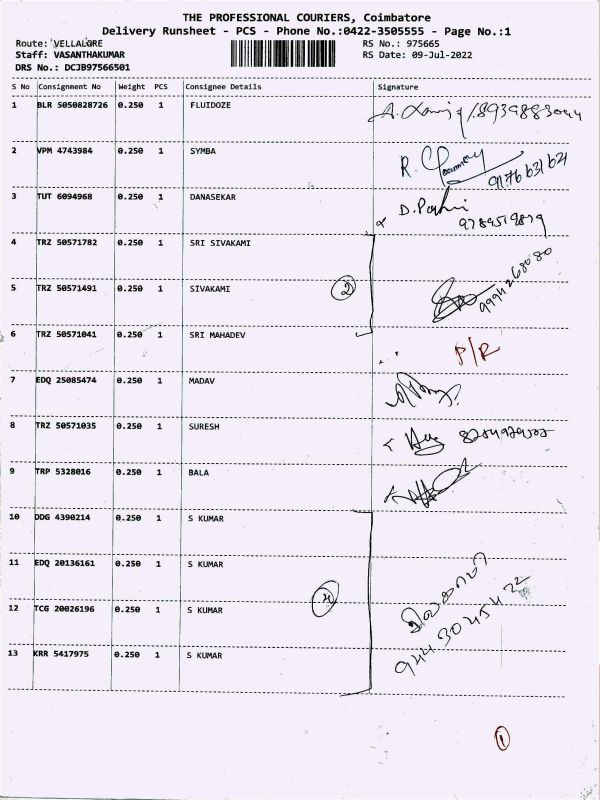 THE PROFESSIONAL COURIERS, Coimbatore
Delivery Runsheet - PCS - Phone No.:0422-3505555 - Page No.:1
Route: VELLALORE RS No.: 975665
Staff: VASANTHAKUMAR RS Date: 09-Jul-2022
DRS No.: DCJB97566501
S No Consignment No Weight PCS Consignee Details Signature
1 BLR 5050828726 0.250 1 FLUIDOZE
2 VPM 4743984 0.250 1 SYMBA R. 9176631621
3 TUT 6094968 0.250 1 DANASEKAR D. 9789519879
4 TRZ 50571782 0.250 1 SRI SIVAKAMI
5 TRZ 50571491 0.250 1 SIVAKAMI 2 9994268080
6 TRZ 50571041 0.250 1 SRI MAHADEV P/R
7 EDQ 25085474 0.250 1 MADAV
8 TRZ 50571035 0.250 1 SURESH
9 TRP 5328016 0.250 1 BALA
10 DDG 4390214 0.250 1 S KUMAR
11 EDQ 20136161 0.250 1 S KUMAR
12 TCG 20026196 0.250 1 S KUMAR 4
13 KRR 5417975 0.250 1 S KUMAR 9443045422
1